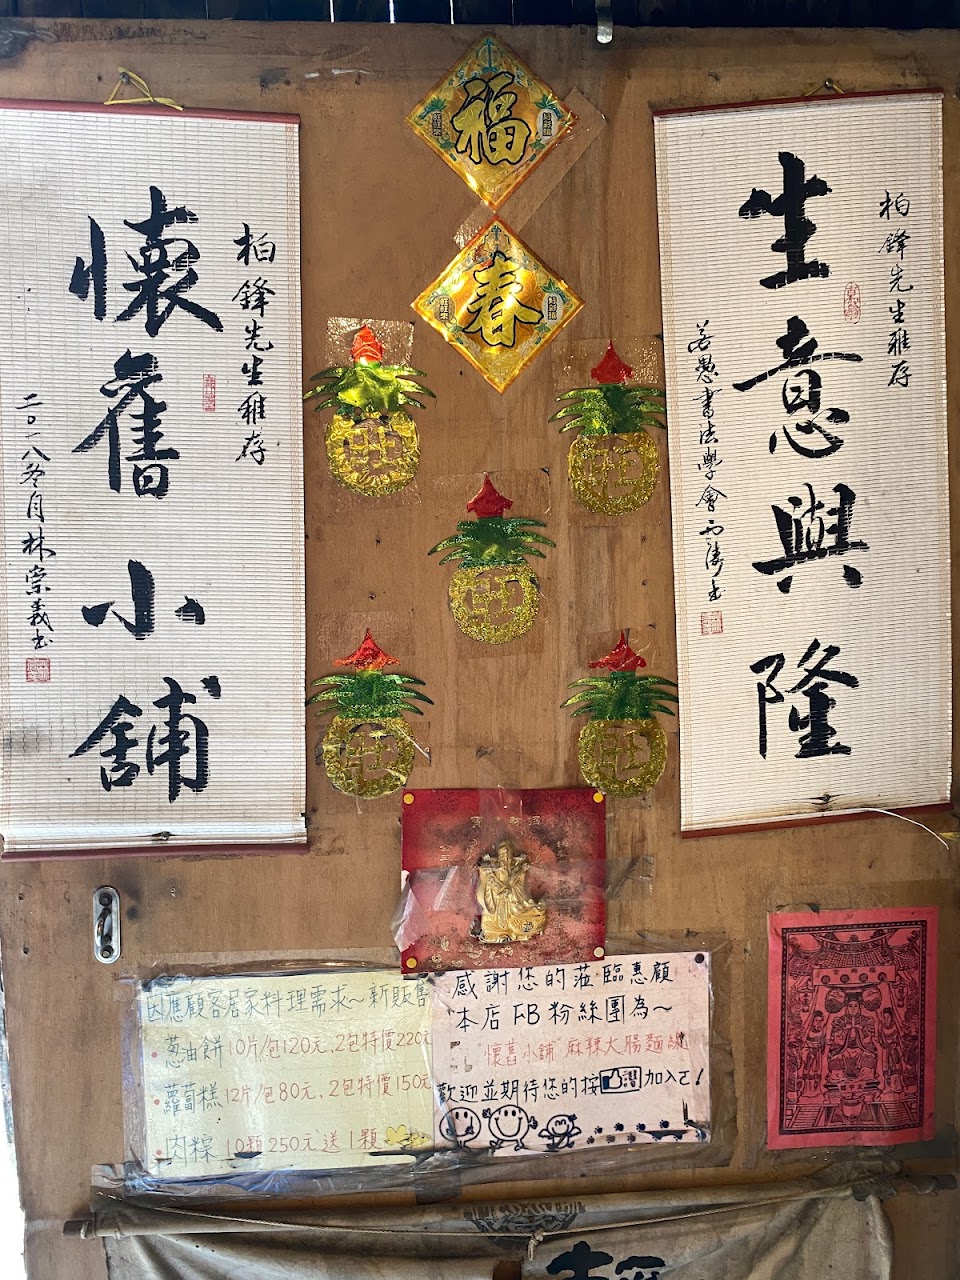 福
春
生意興隆
柏鋒先生雅存
若愚書法學會
懷舊小舖
柏鋒先生雅存
二〇一八冬月林崇義書
旺
旺
旺
旺
因應顧客居家料理需求~新販售
• 蔥油餅 10片/包120元,2包特價220元
• 蘿蔔糕 12片/包80元,2包特價150元
• 肉粽 10顆250元送1顆
感謝您的蒞臨惠顧
本店FB粉絲團為~
"懷舊小舖"麻辣大腸麵線
歡迎並期待您的按讚加入ㄛ!